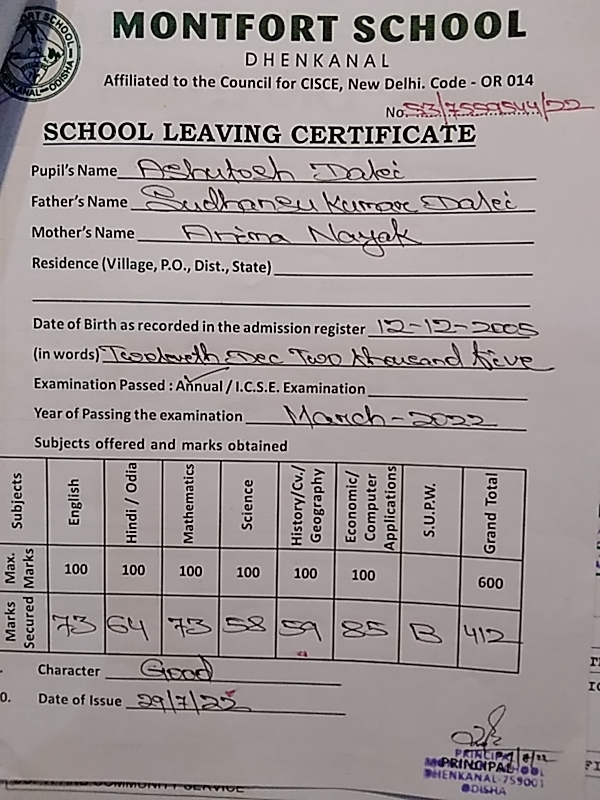 MONTFORT SCHOOL
DHENKANAL
Affiliated to the Council for CISCE, New Delhi. Code - OR 014
No. 53/7559544/22
SCHOOL LEAVING CERTIFICATE
Pupil's Name Ashutosh Dalei
Father's Name Sudhansu Kumar Dalei
Mother's Name Arima Nayak
Residence (Village, P.O., Dist., State)
Date of Birth as recorded in the admission register 12-12-2005
(in words) Twoleveth Dec Two thousand five
Examination Passed : Annual / I.C.S.E. Examination
Year of Passing the examination March-2022
Subjects offered and marks obtained
Subjects English Hindi / Odia Mathematics Science History/Cv./ Geography Economic/ Computer Applications S.U.P.W. Grand Total
Max. Marks 100 100 100 100 100 100 600
Marks Secured 73 64 73 58 59 85 B 412
Character Good
0. Date of Issue 29/7/22
PRINCIPAL
PRINCIPAL
DHENKANAL-759001
ODISHA